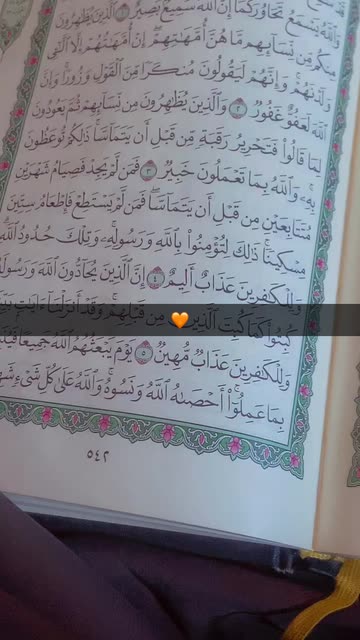 وَاللَّهُ يَسْمَعُ تَحَاوُرَكُمَا إِنَّ اللَّهَ سَمِيعٌ بَصِيرٌ ١ الَّذِينَ يُظَاهِرُونَ
مِنكُم مِّن نِّسَائِهِم مَّا هُنَّ أُمَّهَاتِهِمْ إِنْ أُمَّهَاتُهُمْ إِلَّا الَّٰٓـِٔى
وَلَدْنَهُمْ وَإِنَّهُمْ لَيَقُولُونَ مُنكَرًا مِّنَ الْقَوْلِ وَزُورًا وَإِنَّ
اللَّهَ لَعَفُوٌّ غَفُورٌ ٢ وَالَّذِينَ يُظَاهِرُونَ مِن نِّسَائِهِمْ ثُمَّ يَعُودُونَ
لِمَا قَالُوا فَتَحْرِيرُ رَقَبَةٍ مِّن قَبْلِ أَن يَتَمَاسَّا ذَٰلِكُمْ تُوعَظُونَ
بِهِ وَاللَّهُ بِمَا تَعْمَلُونَ خَبِيرٌ ٣ فَمَن لَّمْ يَجِدْ فَصِيَامُ شَهْرَيْنِ
مُتَتَابِعَيْنِ مِن قَبْلِ أَن يَتَمَاسَّا فَمَن لَّمْ يَسْتَطِعْ فَإِطْعَامُ سِتِّينَ
مِسْكِينًا ذَٰلِكَ لِتُؤْمِنُوا بِاللَّهِ وَرَسُولِهِ وَتِلْكَ حُدُودُ اللَّهِ
وَلِلْكَافِرِينَ عَذَابٌ أَلِيمٌ ٤ إِنَّ الَّذِينَ يُحَادُّونَ اللَّهَ وَرَسُولَهُ
كُبِتُوا كَمَا كُبِتَ الَّذِينَ مِن قَبْلِهِمْ وَقَدْ أَنزَلْنَا آيَاتٍ
وَلِلْكَافِرِينَ عَذَابٌ مُّهِينٌ ٥ يَوْمَ يَبْعَثُهُمُ اللَّهُ جَمِيعًا
بِمَا عَمِلُوا أَحْصَاهُ اللَّهُ وَنَسُوهُ وَاللَّهُ عَلَىٰ كُلِّ شَيْءٍ
٥٤٢